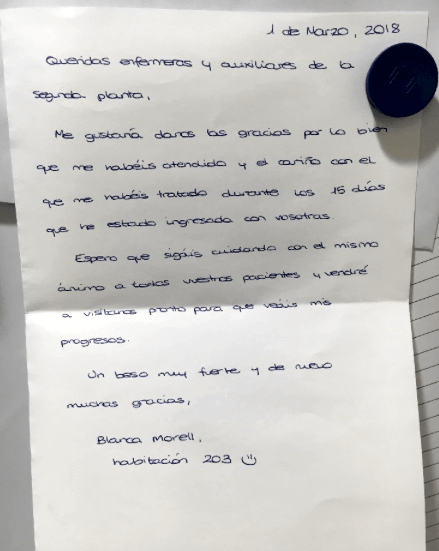 1 de Marzo, 2018
Queridas enfermeras y auxiliares de la
segunda planta,
Me gustaría daros las gracias por lo bien
que me habéis atendido y el cariño con el
que me habéis tratado durante los 15 días
que he estado ingresada con vosotras.
Espero que sigáis cuidando con el mismo
ánimo a todos vuestros pacientes y vendré
a visitaros pronto para que veáis mis
progresos.
Un beso muy fuerte y de nuevo
muchas gracias,
Blanca Morell,
habitación 203